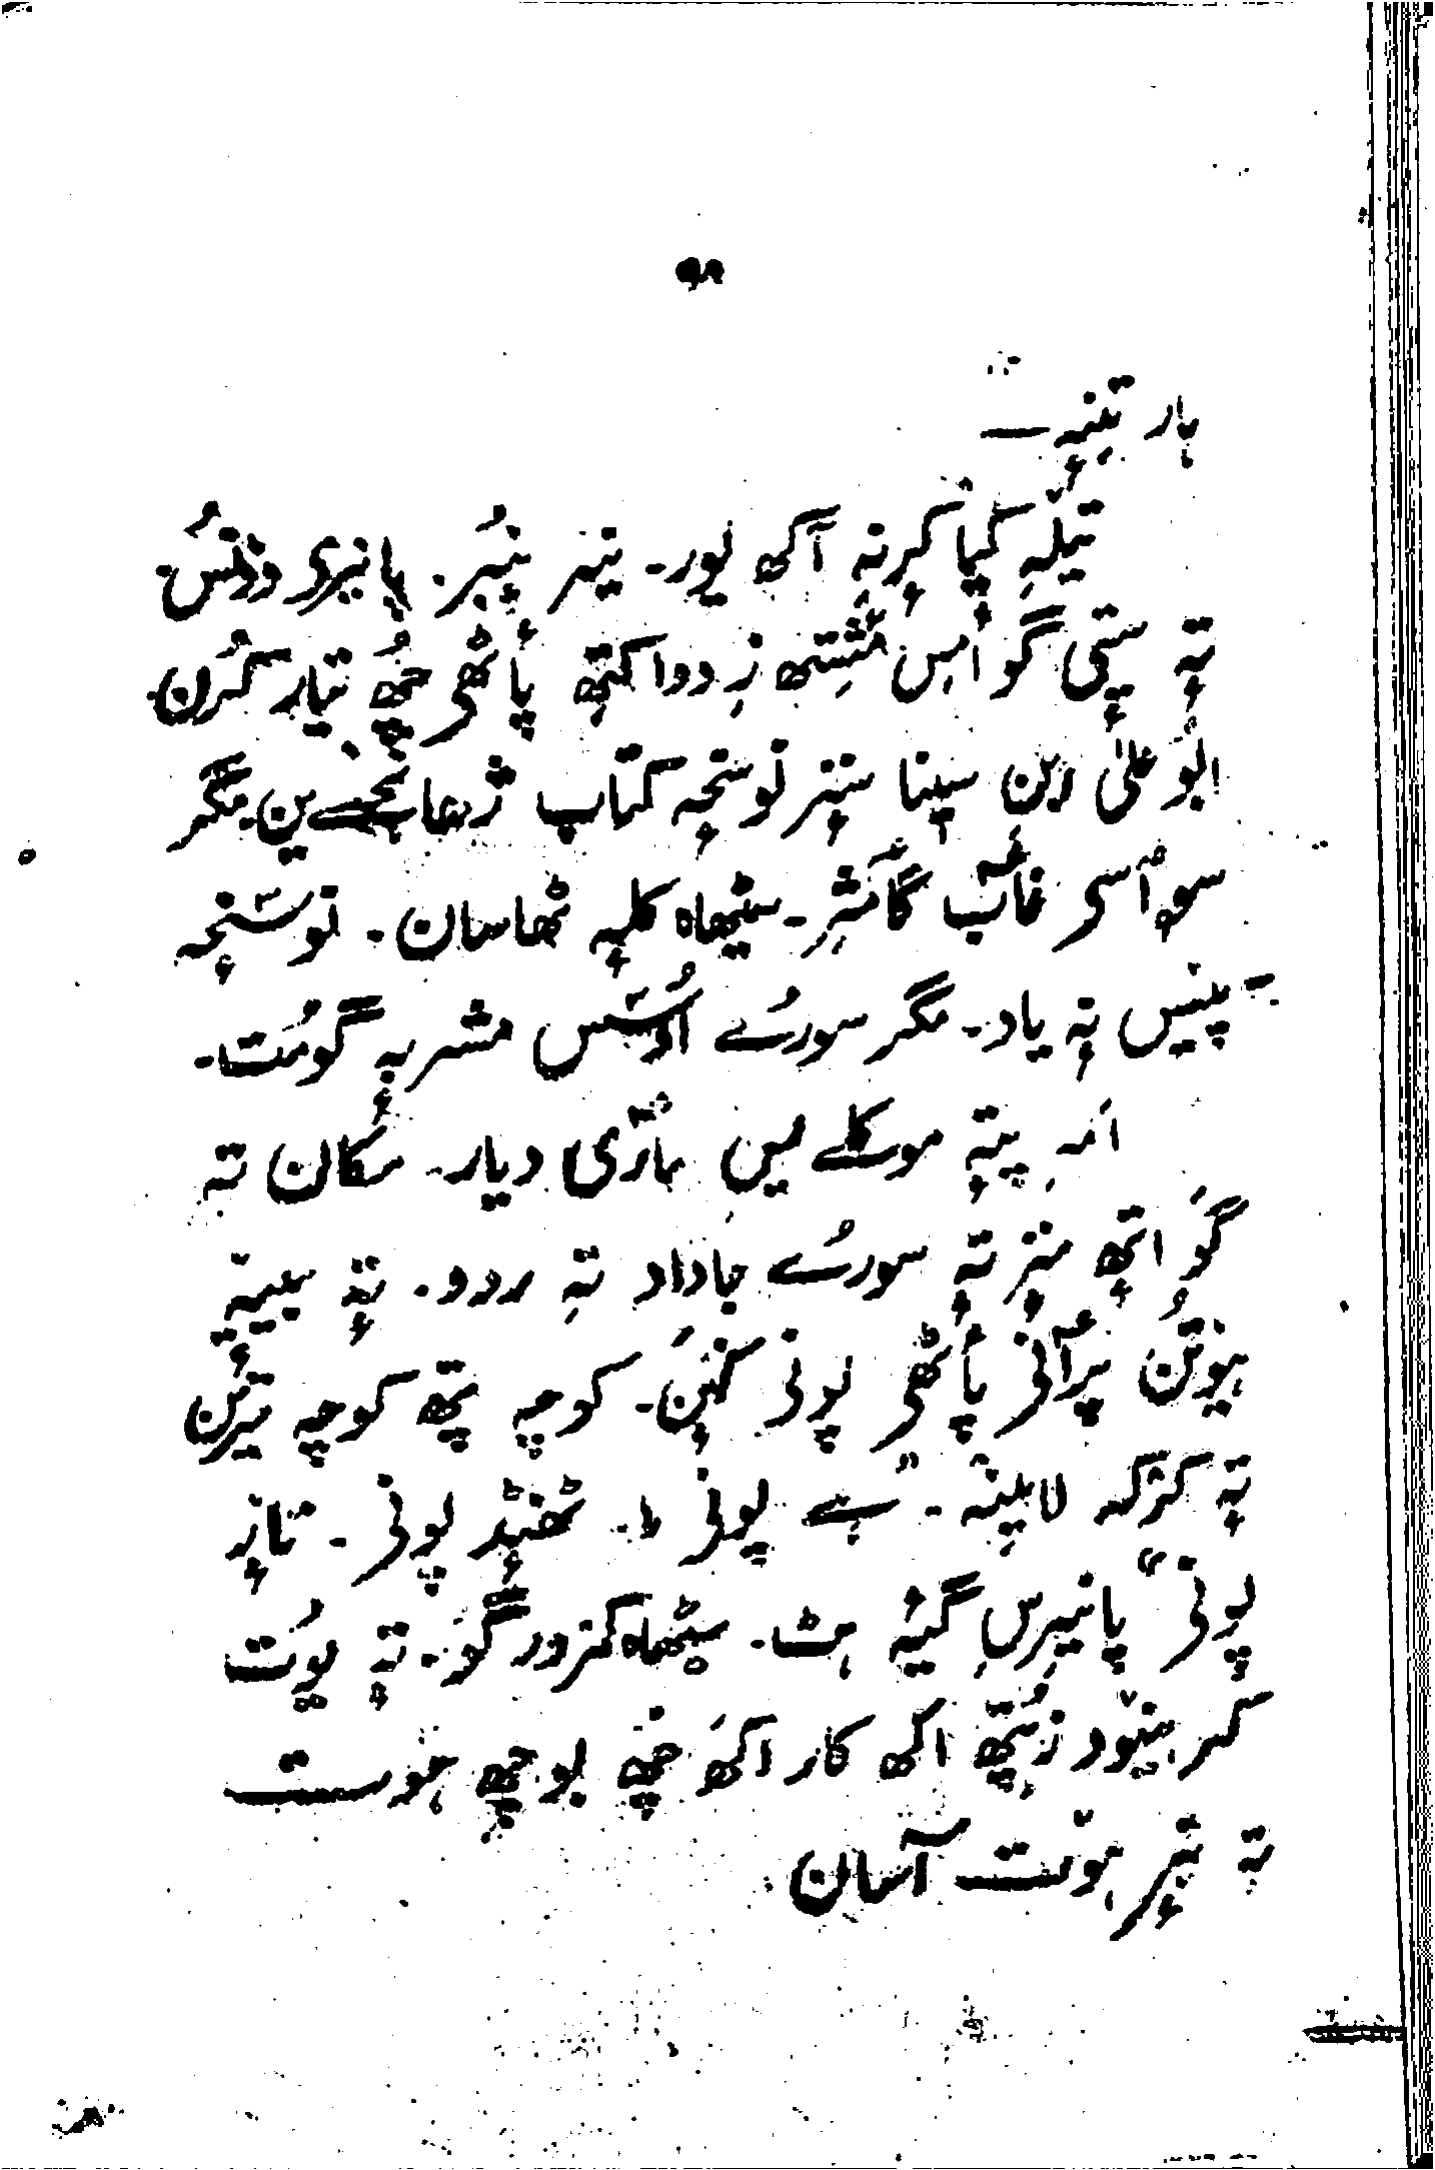 ہار تٕنہٕ —
تیلہِ کیا کرٕنہِ آکھ یور۔ نیر نیٚبُر۔ پانیری ووٚنُس۔
تہٕ ستی گو اَمِس مٔشِتھ زِ دوا کتھٕ پأٹھی چھُ تیار کرُن
ابو علی ابن سینا سٕنز نوسخہٕ کتاب ژھا ین مگر
سو أسی غأئب گأمٕژ۔ سیٹھاہ کلہٕ ٹھاسان۔ نوسخہٕ
پیٚیس نہٕ یاد۔ مگر سورُے اوسُس مشرٕ گومُت۔
اَمہِ پتہٕ موکلے یس مأری دیار۔ مکان تہ
گَو اتھٕ منٛز تہٕ سورُے جاداد تہِ ردو۔ تہٕ
ہیوٚتُن پرٲنی پأٹھی پونی کنٕن۔ کوچہ پتھ کوچہ
تہٕ کرٛکہ لایِنہِ۔ "ہے پونی ۔ ٹھنڈٕ پونی۔ تازٕ
پونی" پانیرِس گیہٕ ہٹ۔ سیٹھاہ کمزور گو۔ تہٕ یوٗت
کر ہیوٚد زٕتھ اکھ کار اکھَ چھٕ بوچھِ ہوت
تہٕ تیٚر ہوٚت آسان